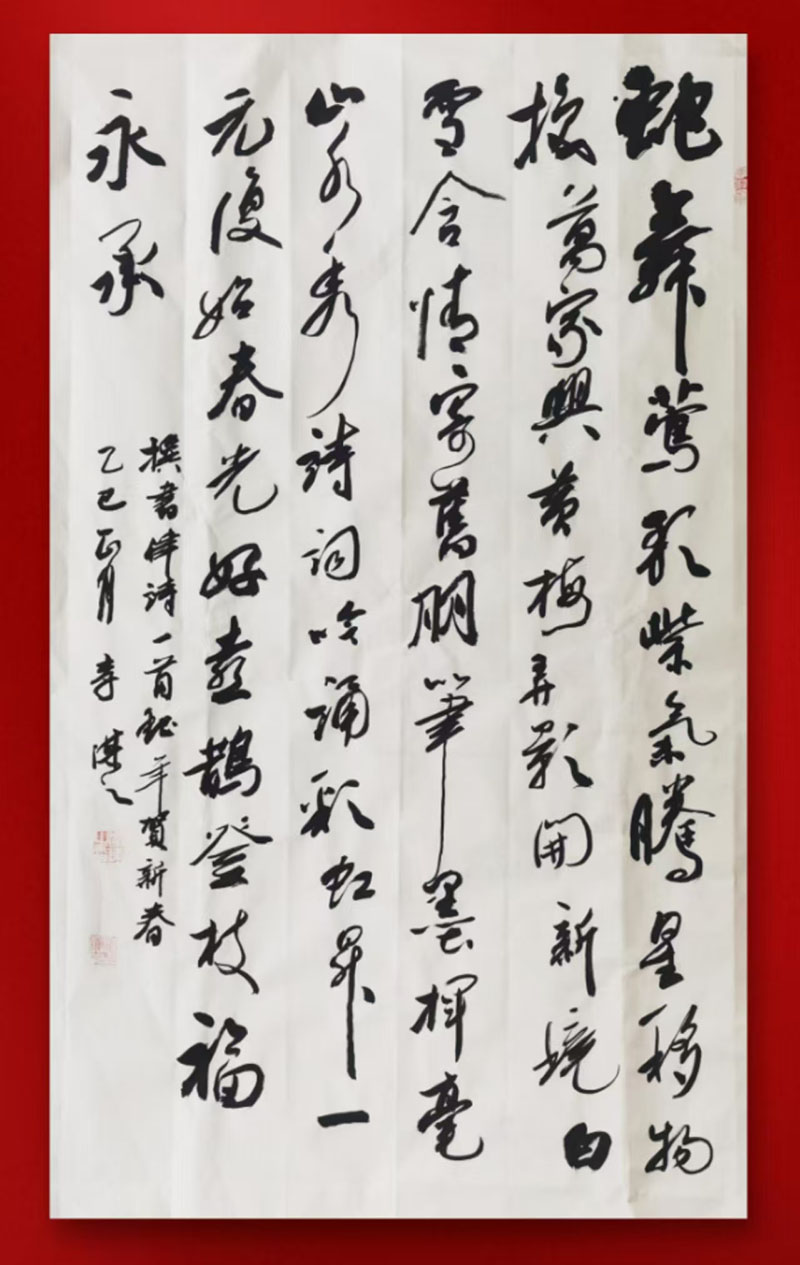 蛇舞鶯歌紫氣騰星移物
換萬家興黄梅弄影開新境白
雪含情寄舊朋筆墨揮毫
山水秀詩詞吟誦彩虹昇一
元復始春光好喜鵲登枝福
永承
撰書律詩一首蛇年賀新春
乙巳正月 李